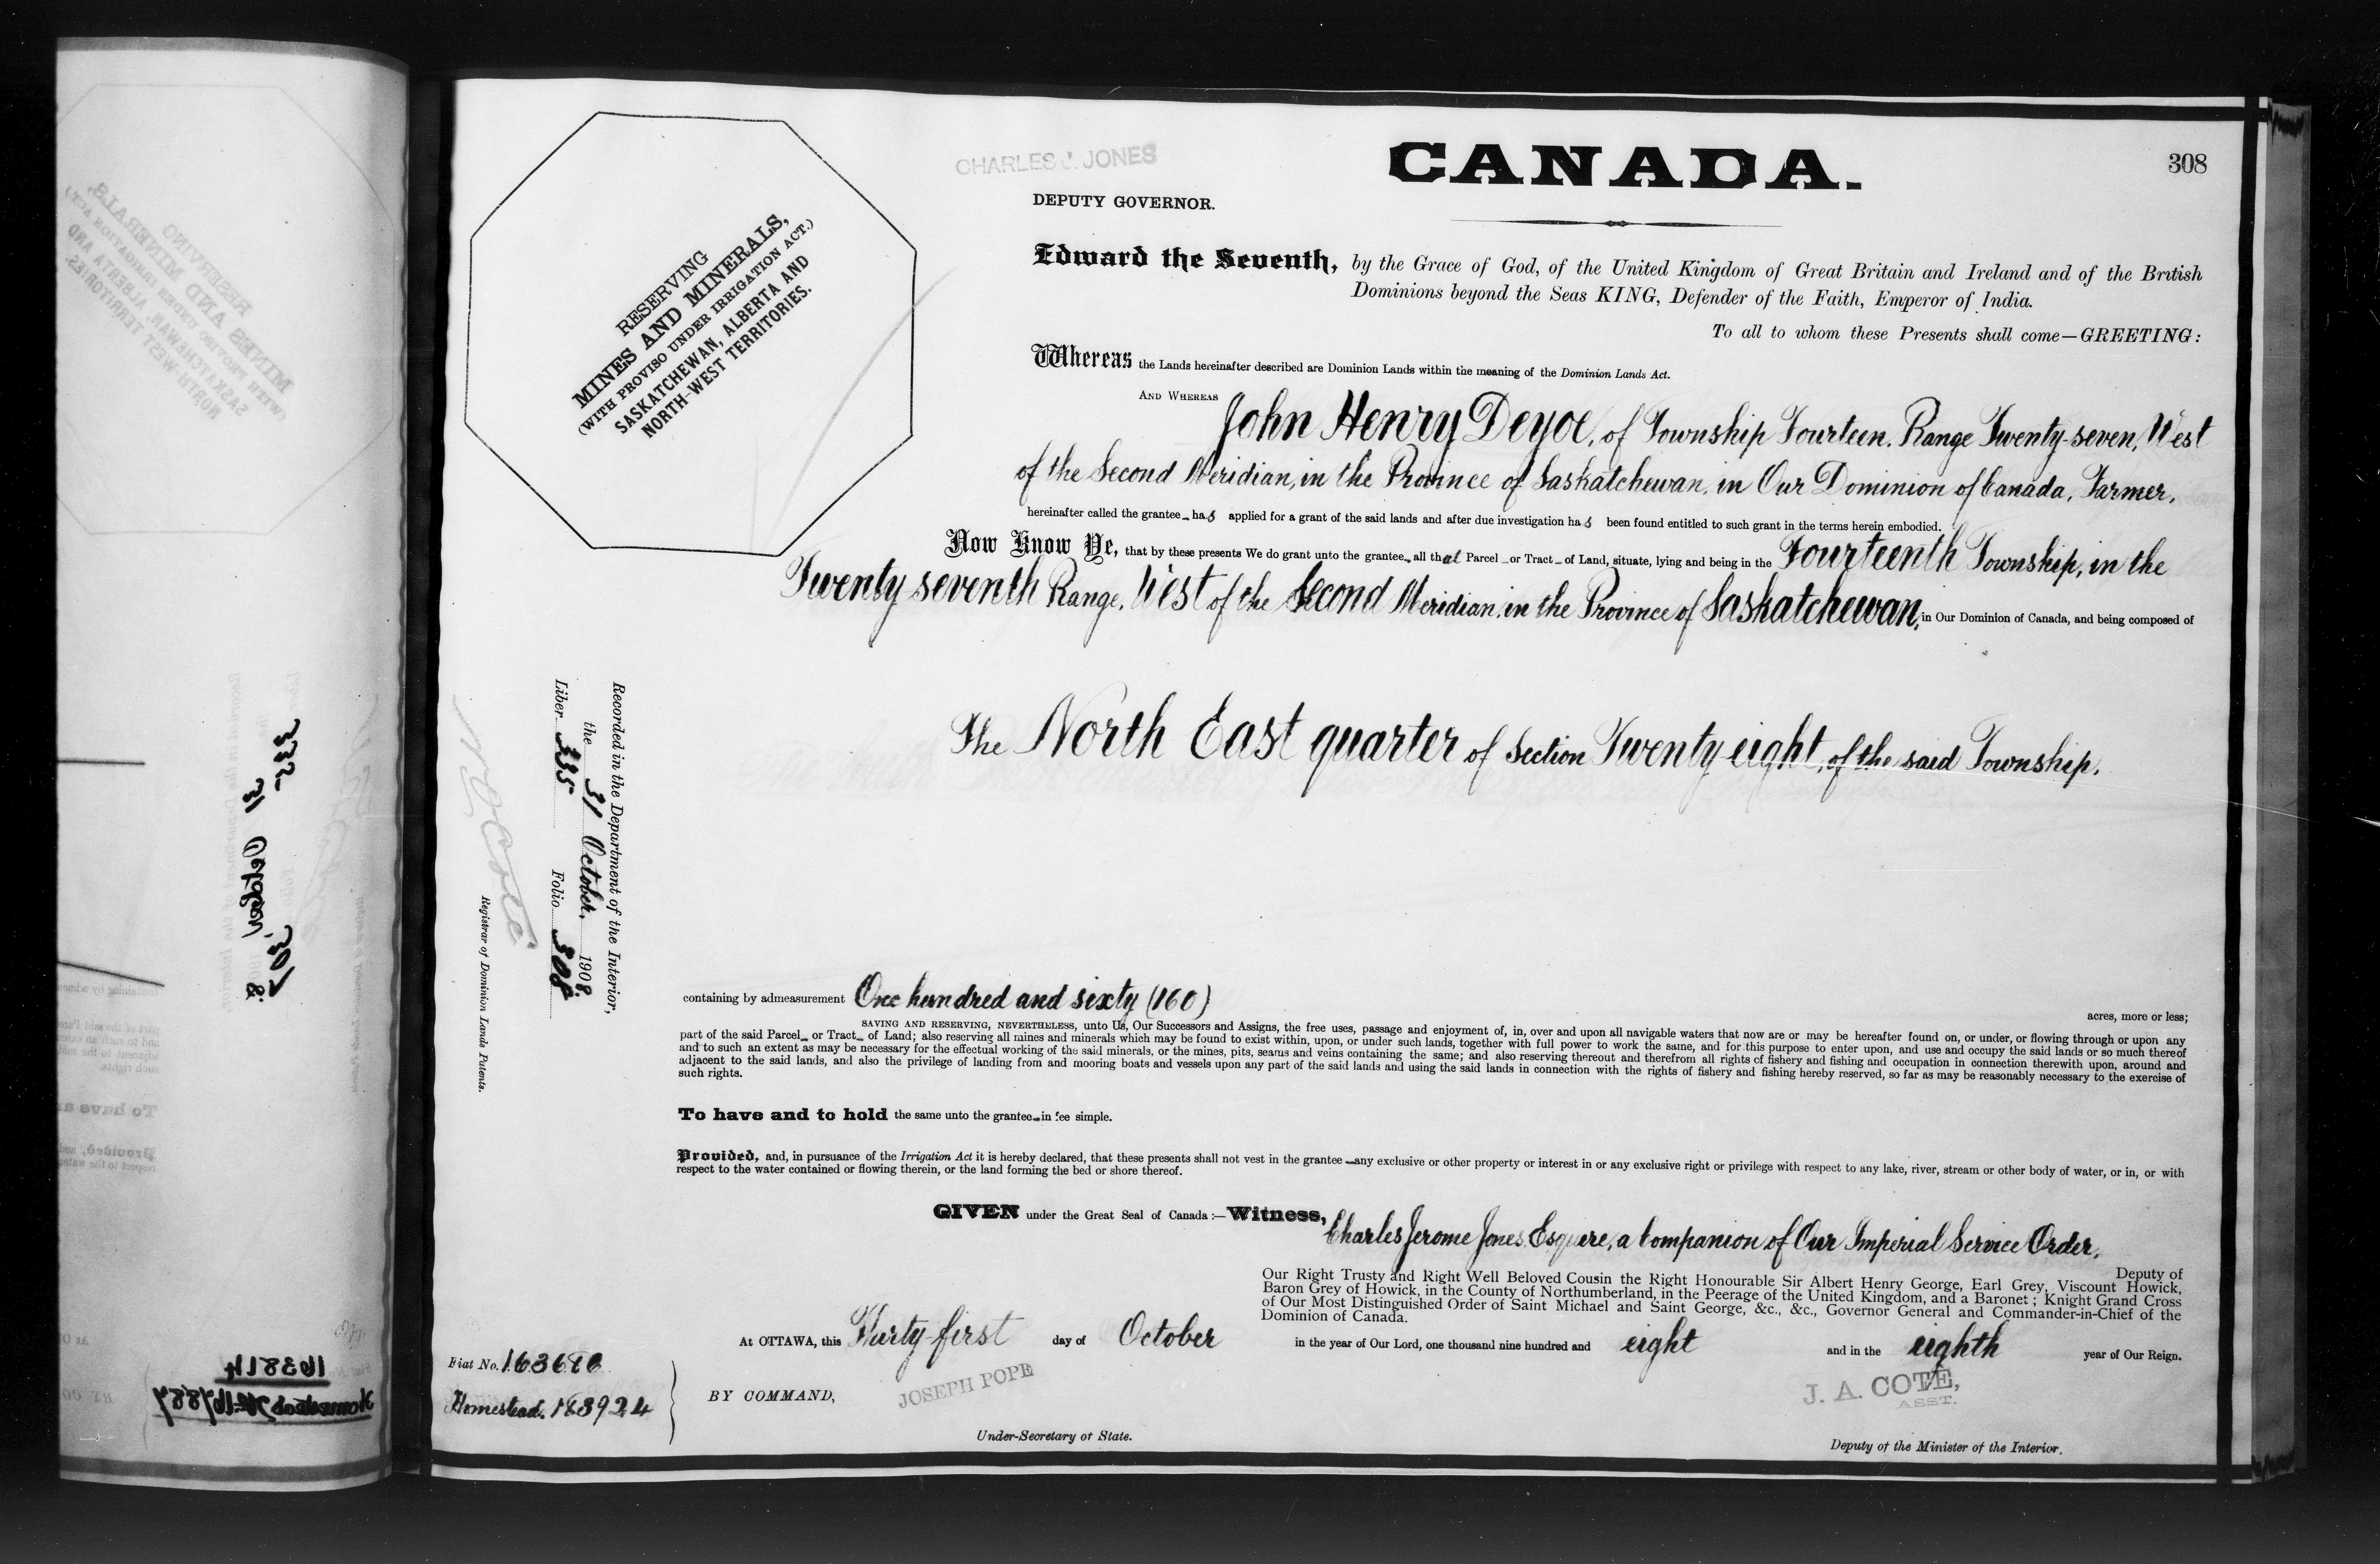 308
CHARLES J. JONES
CANADA.
DEPUTY GOVERNOR.
RESERVING
MINES AND MINERALS,
(WITH PROVISO UNDER IRRIGATION ACT.)
SASKATCHEWAN, ALBERTA AND
NORTH-WEST TERRITORIES.
Edward the Seventh, by the Grace of God, of the United Kingdom of Great Britain and Ireland and of the British
Dominions beyond the Seas KING, Defender of the Faith, Emperor of India.
To all to whom these Presents shall come—GREETING:
Whereas the Lands hereinafter described are Dominion Lands within the meaning of the Dominion Lands Act.
AND WHEREAS John Henry Deyoe, of Township Fourteen, Range Twenty-seven, West
of the Second Meridian, in the Province of Saskatchewan, in Our Dominion of Canada, Farmer,
hereinafter called the grantee has applied for a grant of the said lands and after due investigation has been found entitled to such grant in the terms herein embodied.
Now Know Ye, that by these presents We do grant unto the grantee all that Parcel or Tract of Land, situate, lying and being in the Fourteenth Township, in the
Twenty seventh Range, West of the Second Meridian, in the Province of Saskatchewan, in Our Dominion of Canada, and being composed of
The North East quarter of Section Twenty eight, of the said Township.
Recorded in the Department of the Interior,
the 31 October. 1908.
Liber 335 Folio 308
Registrar of Dominion Lands Patents.
containing by admeasurement One hundred and sixty (160) acres, more or less;
SAVING AND RESERVING, NEVERTHELESS, unto Us, Our Successors and Assigns, the free uses, passage and enjoyment of, in, over and upon all navigable waters that now are or may be hereafter found on, or under, or flowing through or upon any
part of the said Parcel or Tract of Land; also reserving all mines and minerals which may be found to exist within, upon, or under such lands, together with full power to work the same, and for this purpose to enter upon, and use and occupy the said lands or so much thereof
and to such an extent as may be necessary for the effectual working of the said minerals, or the mines, pits, seams and veins containing the same; and also reserving thereout and therefrom all rights of fishery and fishing and occupation in connection therewith upon, around and
adjacent to the said lands, and also the privilege of landing from and mooring boats and vessels upon any part of the said lands and using the said lands in connection with the rights of fishery and fishing hereby reserved, so far as may be reasonably necessary to the exercise of
such rights.
To have and to hold the same unto the grantee in fee simple.
Provided, and, in pursuance of the Irrigation Act it is hereby declared, that these presents shall not vest in the grantee any exclusive or other property or interest in or any exclusive right or privilege with respect to any lake, river, stream or other body of water, or in, or with
respect to the water contained or flowing therein, or the land forming the bed or shore thereof.
GIVEN under the Great Seal of Canada:—Witness, Charles Jerome Jones, Esquire, a Companion of Our Imperial Service Order,
Deputy of
Our Right Trusty and Right Well Beloved Cousin the Right Honourable Sir Albert Henry George, Earl Grey, Viscount Howick,
Baron Grey of Howick, in the County of Northumberland, in the Peerage of the United Kingdom, and a Baronet; Knight Grand Cross
of Our Most Distinguished Order of Saint Michael and Saint George, &c., &c., Governor General and Commander-in-Chief of the
Dominion of Canada.
At OTTAWA, this Thirty-first day of October in the year of Our Lord, one thousand nine hundred and eight and in the eighth year of Our Reign.
Fiat No.
Homestead.
BY COMMAND,
JOSEPH POPE
Under-Secretary of State.
J. A. COTE,
ASST.
Deputy of the Minister of the Interior.